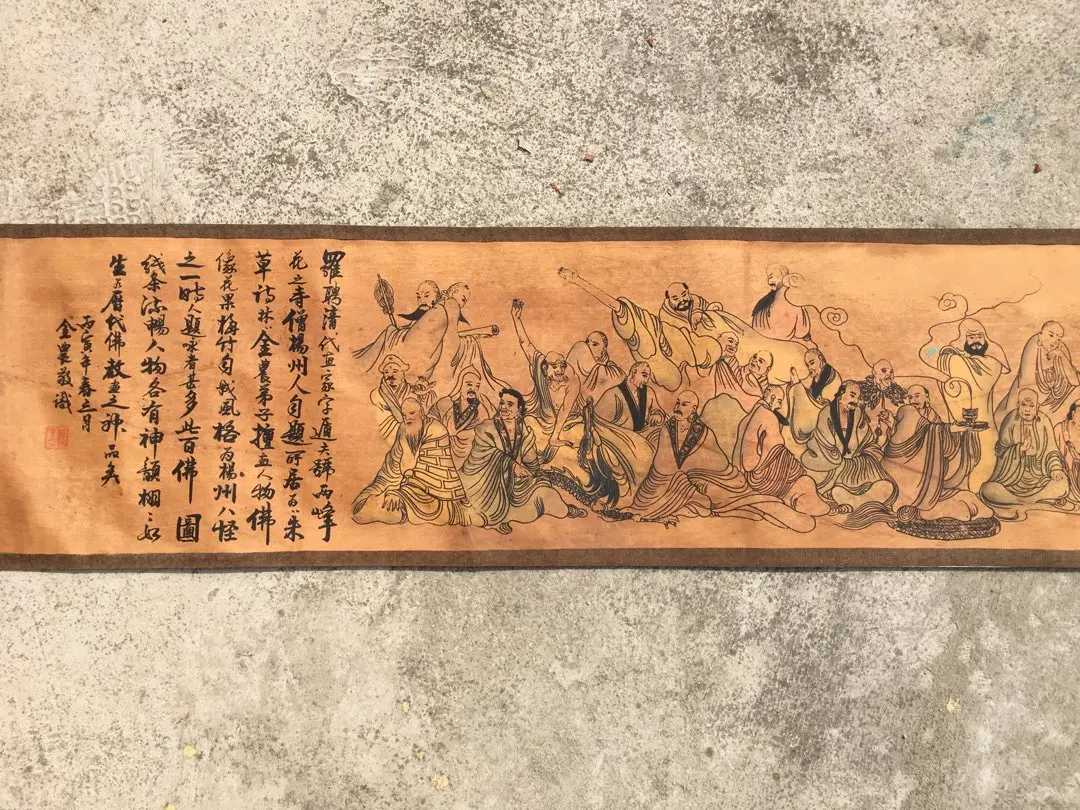 羅聘清代画家字遁夫號两峰
花之寺僧楊州人自題所居为朱
草詩林金農弟子擅画人物佛
像花果梅竹自成風格为楊州八怪
之一時人題咏者甚多此百佛圖
线条流暢人物各有神韻栩々如
生乃曆代佛教画之神品矣
丙寅年春三月
金農敬識